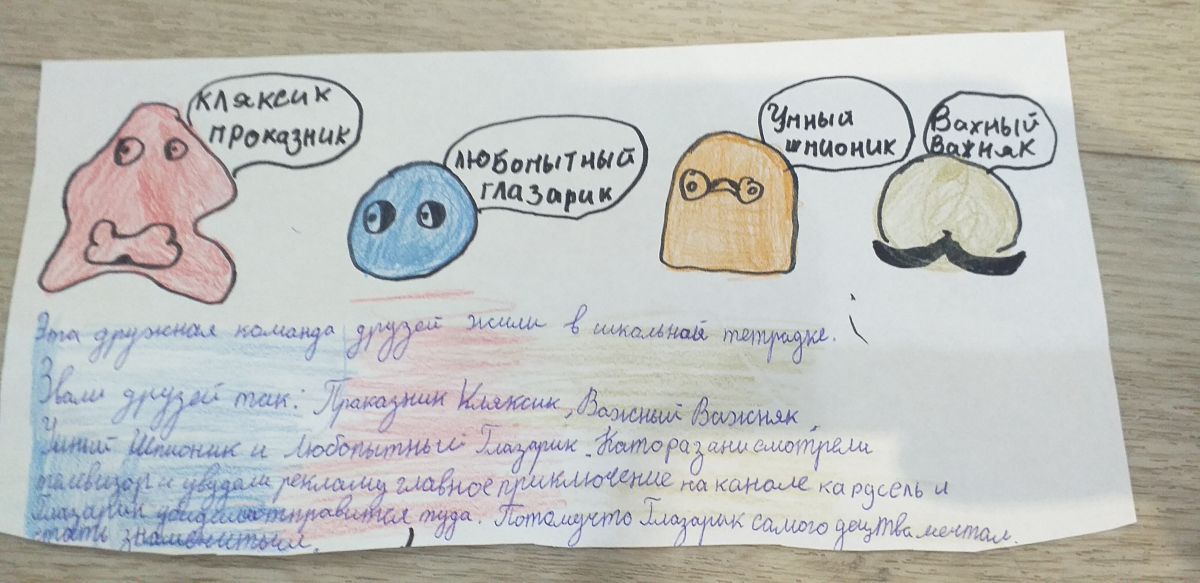 Кляксик
проказник
Любопытный
глазарик
Умный
шпионик
Вахный
Важняк
Эта дружная команда друзей жили в школьнай тетрадке.
Звали друзей так: Праказник Кляксик, Важный Важняк,
Умный Шпионик и Любопытный Глазарик. Каторазани смотрели
телвизор и увудали рекламу главное приключение на канале карусель и
Глазарик отправится туда. Потомучто Глазарик самого децтва мечтал
стать знаменитым.